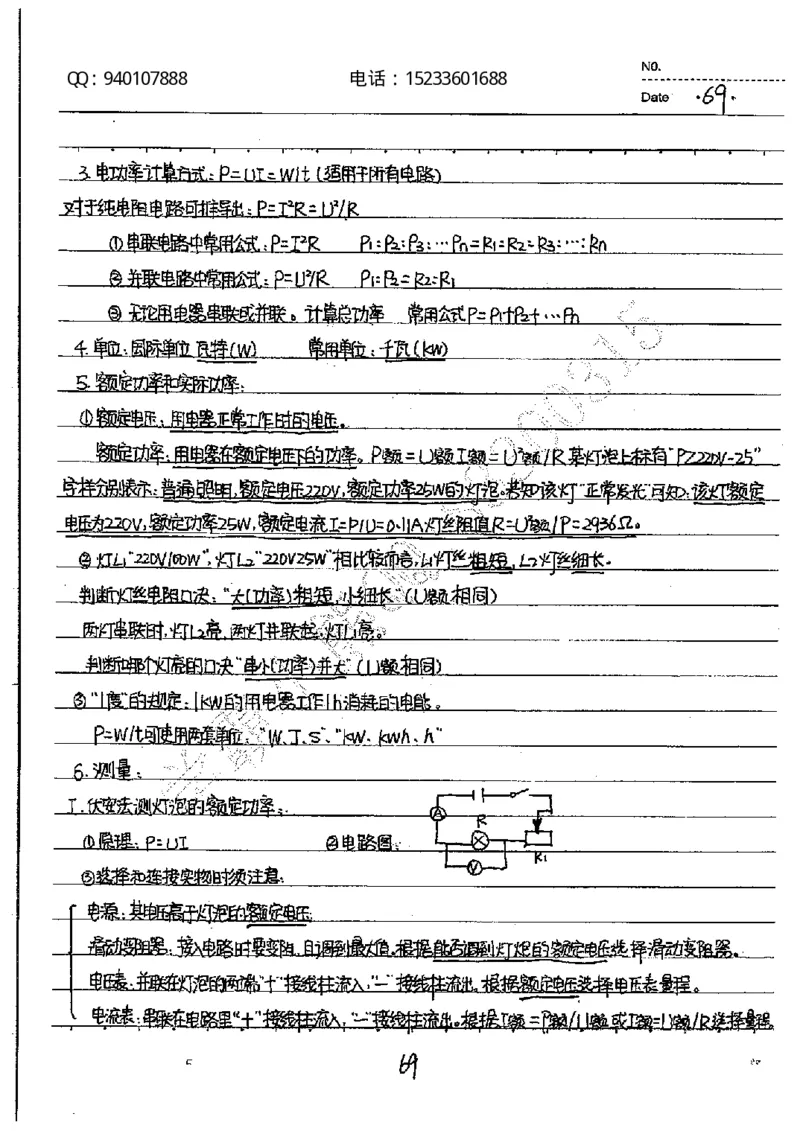 QQ：940107888 电话：15233601688 NO.
Date ·69·
3.电功率计算方式：P=UI=W/t(适用于所有电路)
对于纯电阻电路可推导出：P=I²R=U²/R
①串联电路中常用公式：P=I²R P₁:P₂:P₃:…Pn=R₁:R₂:R₃:…:Rn
②并联电路中常用公式：P=U²/R P₁:P₂=R₂:R₁
③无论用电器串联或并联。计算总功率 常用公式P=P₁+P₂+…Pn
4.单位：国际单位 瓦特(W) 常用单位：千瓦(kW)
5.额定功率和实际功率：
①额定电压：用电器正常工作时的电压。
额定功率：用电器在额定电压下的功率。P额=U额I额=U²额/R 某灯泡上标有"PZ220V-25"
字样分别表示：普通照明，额定电压220V，额定功率25W的灯泡。若知该灯"正常发光"可知：该灯额定
电压为220V，额定功率25W，额定电流I=P/U=0.11A灯丝阻值R=U²额/P=2936Ω。
②灯L₁"220V100W"，灯L₂"220V25W"相比较而言，L₁灯丝粗短，L₂灯丝细长。
判断灯丝电阻口决："大(功率)粗短，小细长"(U额相同)
两灯串联时，灯L₂亮，两灯并联起，灯L₁亮。
判断哪个灯亮的口决"串小(功率)并大"(U额相同)
③"1度"的规定：1kW的用电器工作1h消耗的电能。
P=W/t可使用两套单位："W、J、s"、"kW、kWh、h"
6.测量：
I.伏安法测灯泡的额定功率：
①原理：P=UI ②电路图：
A R V R₁
③选择和连接实物时须注意：
电源：其电压高于灯泡的额定电压
滑动变阻器：接入电路时要变阻，且调到最大值。根据能否调到灯炮的额定电压选择滑动变阻器。
电压表：并联在灯泡的两端"十"接线柱流入，"一"接线柱流出。根据额定电压选择电压表量程。
电流表：串联在电路里"十"接线柱流入，"一"接线柱流出。根据I额=P额/U额或I额=U额/R选择量程
69